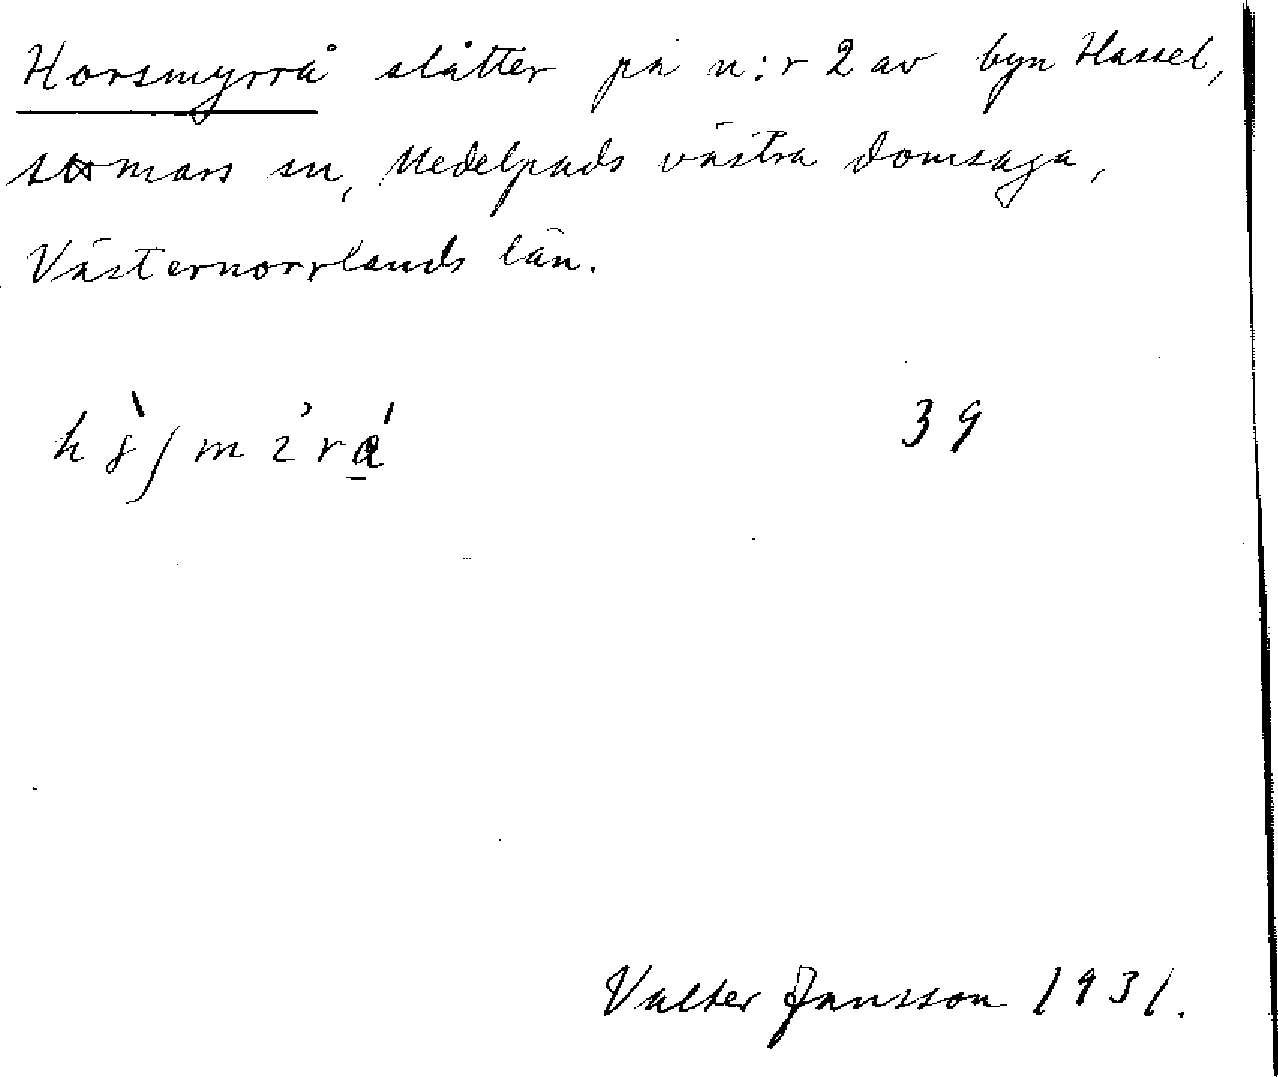 Horsmyrrå slåtter på n:r 2 av byn Hassel,
mars sn, Medelpads västra domsaga,
Västernorrlands län.
39
Valter Jansson 1931.